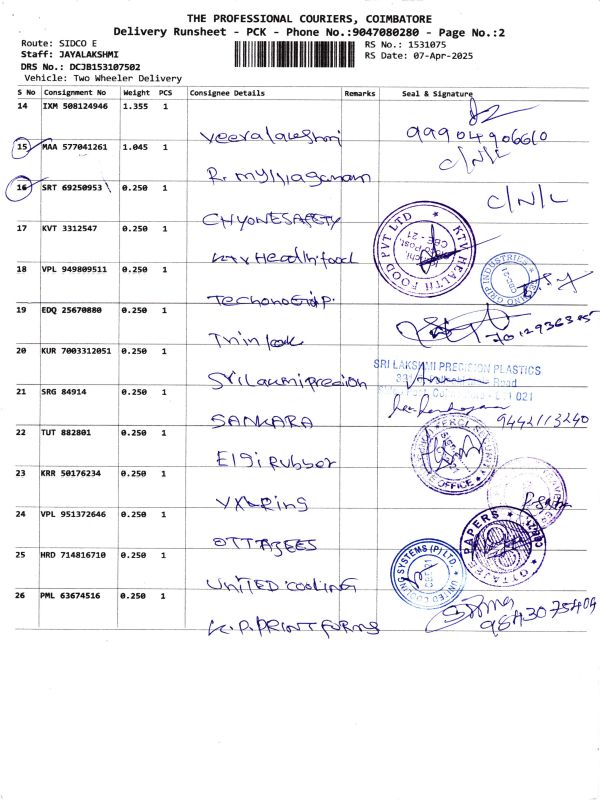 THE PROFESSIONAL COURIERS, COIMBATORE
Delivery Runsheet - PCK - Phone No.:9047080280 - Page No.:2
Route: SIDCO E
Staff: JAYALAKSHMI
DRS No.: DCJB153107502
Vehicle: Two Wheeler Delivery
RS No.: 1531075
RS Date: 07-Apr-2025
S No Consignment No Weight PCS Consignee Details Remarks Seal & Signature
14 IXM 508124946 1.355 1
Veeralakshmi 9990490660
15 MAA 577041261 1.045 1 C/N/L
16 SRT 69250953 0.250 1 C/N/L
CHYONESAFETY
17 KVT 3312547 0.250 1
KTV Health food
KTV HEALTH FOOD PVT LTD
CBE - 21
18 VPL 949809511 0.250 1
19 EDQ 25670880 0.250 1
20 KUR 7003312051 0.250 1
SRI LAKSHMI PRECISION PLASTICS
Road
21 SRG 84914 0.250 1
SANKARA
9442113240
22 TUT 882801 0.250 1
Elgi Rubber
23 KRR 50176234 0.250 1
24 VPL 951372646 0.250 1
OTTAJEES
OTTAJEE PAPERS
25 HRD 714816710 0.250 1
UNITED cooling
UNITED COOLING SYSTEMS (P) LTD.
26 PML 63674516 0.250 1
K.P.PRINT FORMS
9843075409